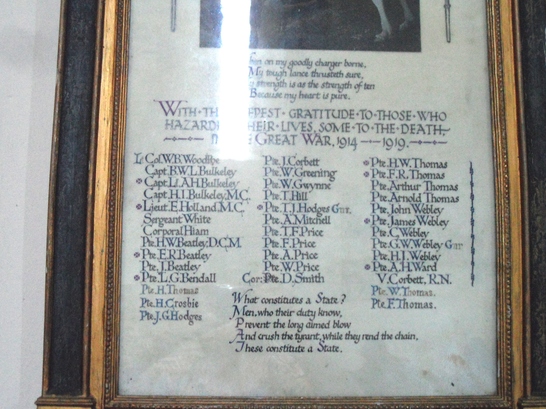 When on my goodly charger borne,
My tough lance thrusteth sure,
My strength is as the strength of ten
Because my heart is pure.
WITH·THE DEEPEST·GRATITUDE·TO·THOSE·WHO
HAZARDED THEIR·LIVES, SOME·TO·THE·DEATH,
IN THE GREAT WAR, 1914—1919.
Lt Col. W.R. Woodthe
Capt. R.W.L. Bulkeley
Capt. L. A.H. Bulkeley
Capt. H.I. Bulkeley, M.C.
Lieut. E. Holland, M.C.
Sergeant White
Corporal Hiam
Pte. H.W. Beatley, D.C.M.
Pte. E.R. Beatley
Pte. J. Beatley
Pte. L.G. Bendall
Pte. H. Thomas
Pte. H. Crosbie
Pte. J.G. Hodges
Pte. J. Corbett
Pte. W. Greening
Pte. W. Gwynne
Pte. T. Hill
Pte. T.J. Hodges Gnr.
Pte. A. Mitchell
Pte. T.F. Price
Pte. F. Price
Pte. A. Price
Pte. W. Price
Cor: Pte. D. Smith
Pte. H.W. Thomas
Pte. F.R. Thomas
Pte. Arthur Thomas
Pte. Arnold Thomas
Pte. John Webley
Pte. James Webley
Pte. C. Webley
Pte. G.W. Webley Gnr
Pte. H.J. Webley
Pte. A.H. Ward
V. Corbett, R.N.
Pte. W. Thomas.
Pte. F. Thomas.
What constitutes a State?
Men, who their duty know,
Prevent the long aimed blow
And crush the tyrant, while they rend the chain,
These constitute a State.